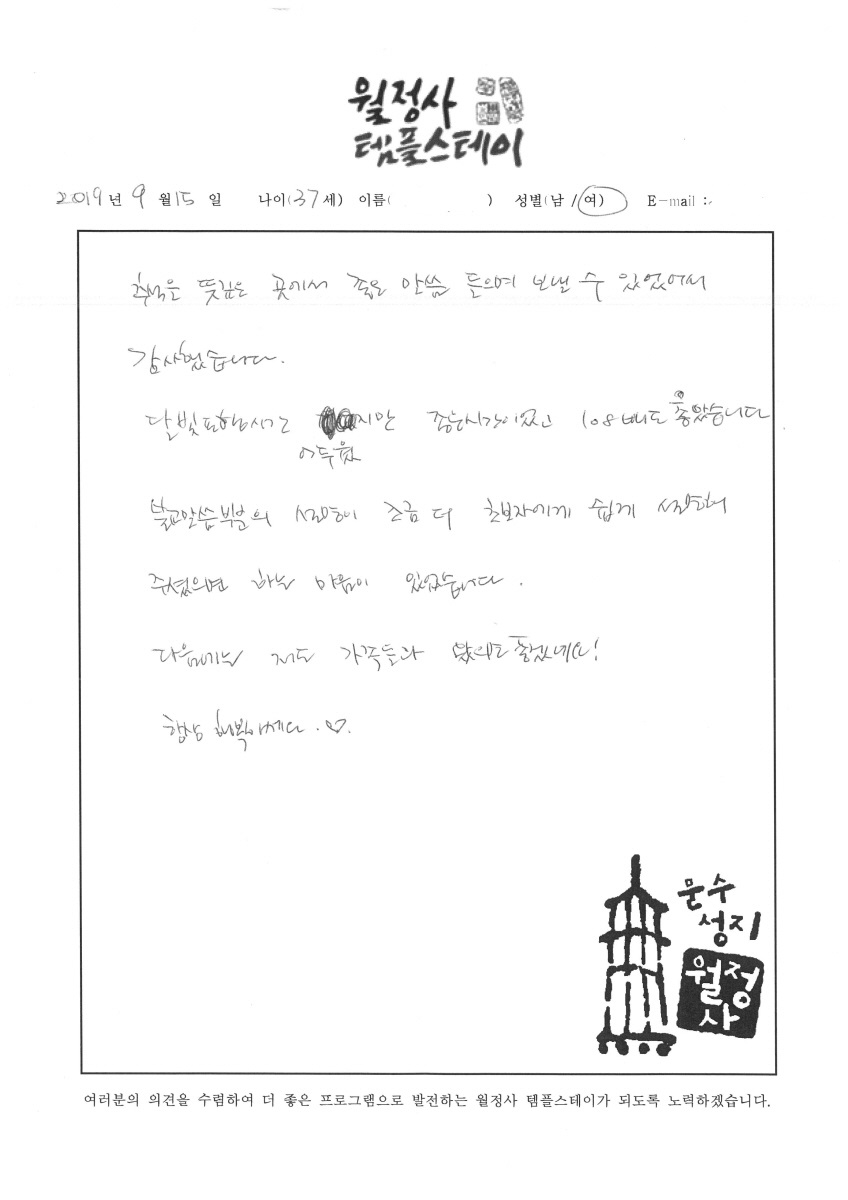 월정사
템플스테이
2019년 9월 15일 나이(37세) 이름( ) 성별(남 / 여) E-mail :
추석을 뜻깊은 곳에서 좋은 말씀 들으며 보낼 수 있었어서
감사했습니다.
달빛포행시간 지만 좋은시간이였고 108배도 좋았습니다
어두웠
불교말씀부분의 설명이 조금 더 초보자에게 쉽게 설명해
주셨으면 하는 마음이 있었습니다.
다음에는 저도 가족들과 좋겠네요!
항상 행복하세요. ♡.
문수
성지
월정
사
여러분의 의견을 수렴하여 더 좋은 프로그램으로 발전하는 월정사 템플스테이가 되도록 노력하겠습니다.